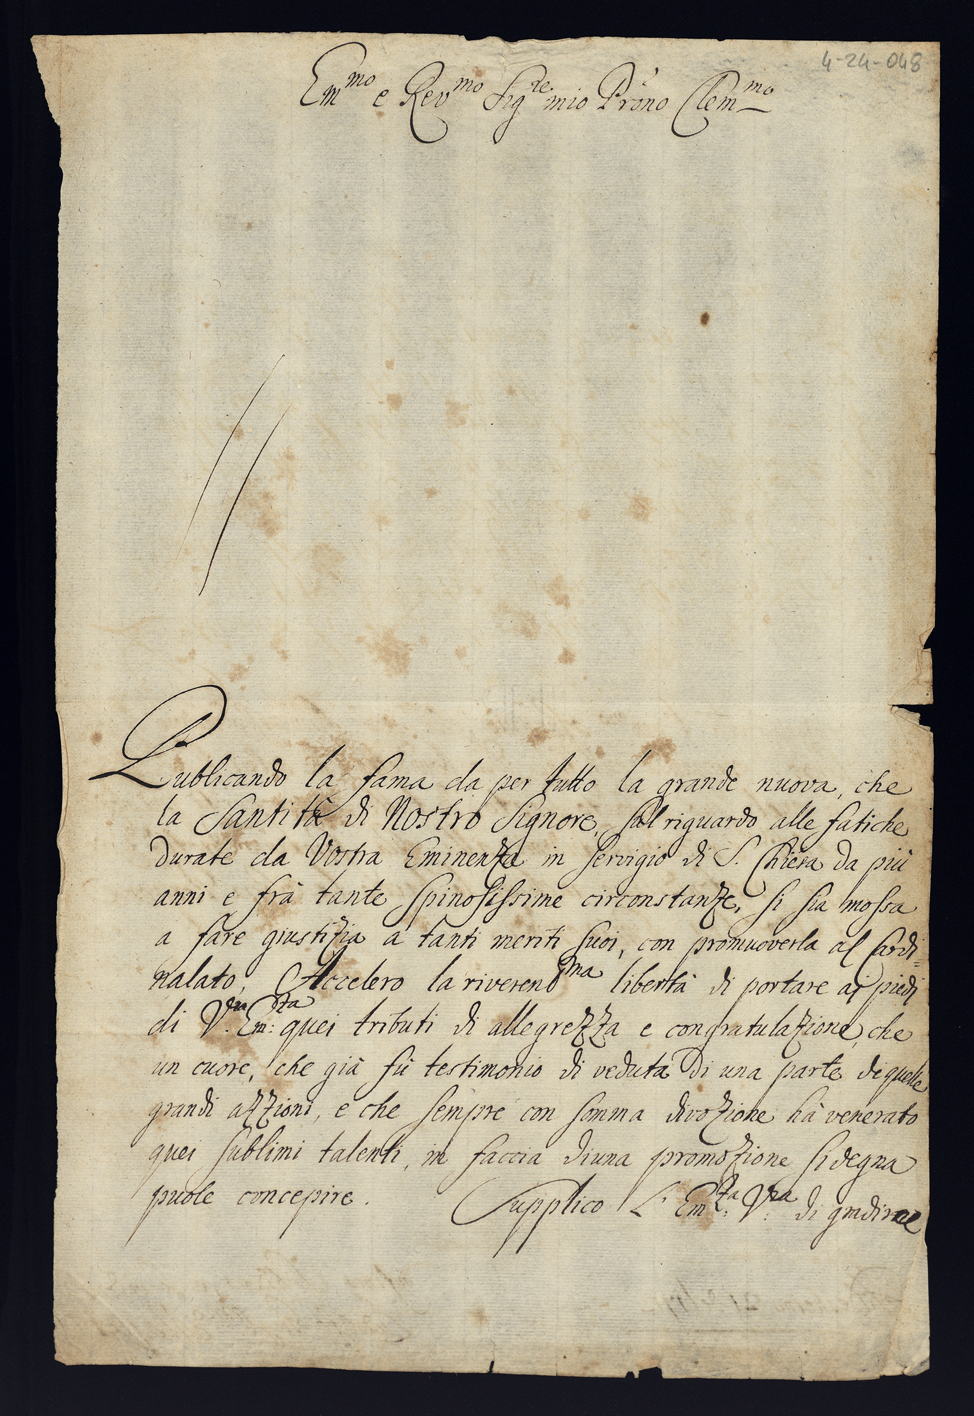 4-24-048
Em.mo e Rev.mo Sig.re mio Prōno Clem.mo
Publicando la fama da per tutto la grande nuova, che
la Santità di Nostro Signore, sul riguardo alle fatiche
durate da Vostra Eminenza in servigio di S. Chiesa da più
anni e frà tante spinosissime circonstanze, si sia mossa
a fare giustizia a tanti meriti suoi, con promuoverla al Cardi=
nalato; Accelero la riverend.ma libertà di portare ai piedi
di V.ra Em.za quei tributi di allegrezza e congratulazione, che
un cuore, che già fù testimonio di veduta di una parte di quelle
grandi azzioni, e che sempre con somma divozione hà venerato
quei sublimi talenti, in faccia di una promozione sì degna
puole concepire. Supplico L'Em.za V.ra di gradirne